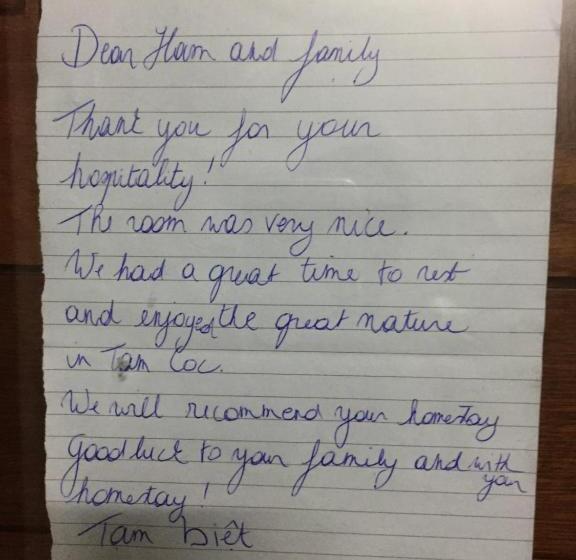 Dear Ham and family
Thank you for your
hospitality!
The room was very nice.
We had a great time to rest
and enjoyed the great nature
in Tam Coc.
We will recommend your homestay
Good luck to your family and with your
homestay!
Tam biệt